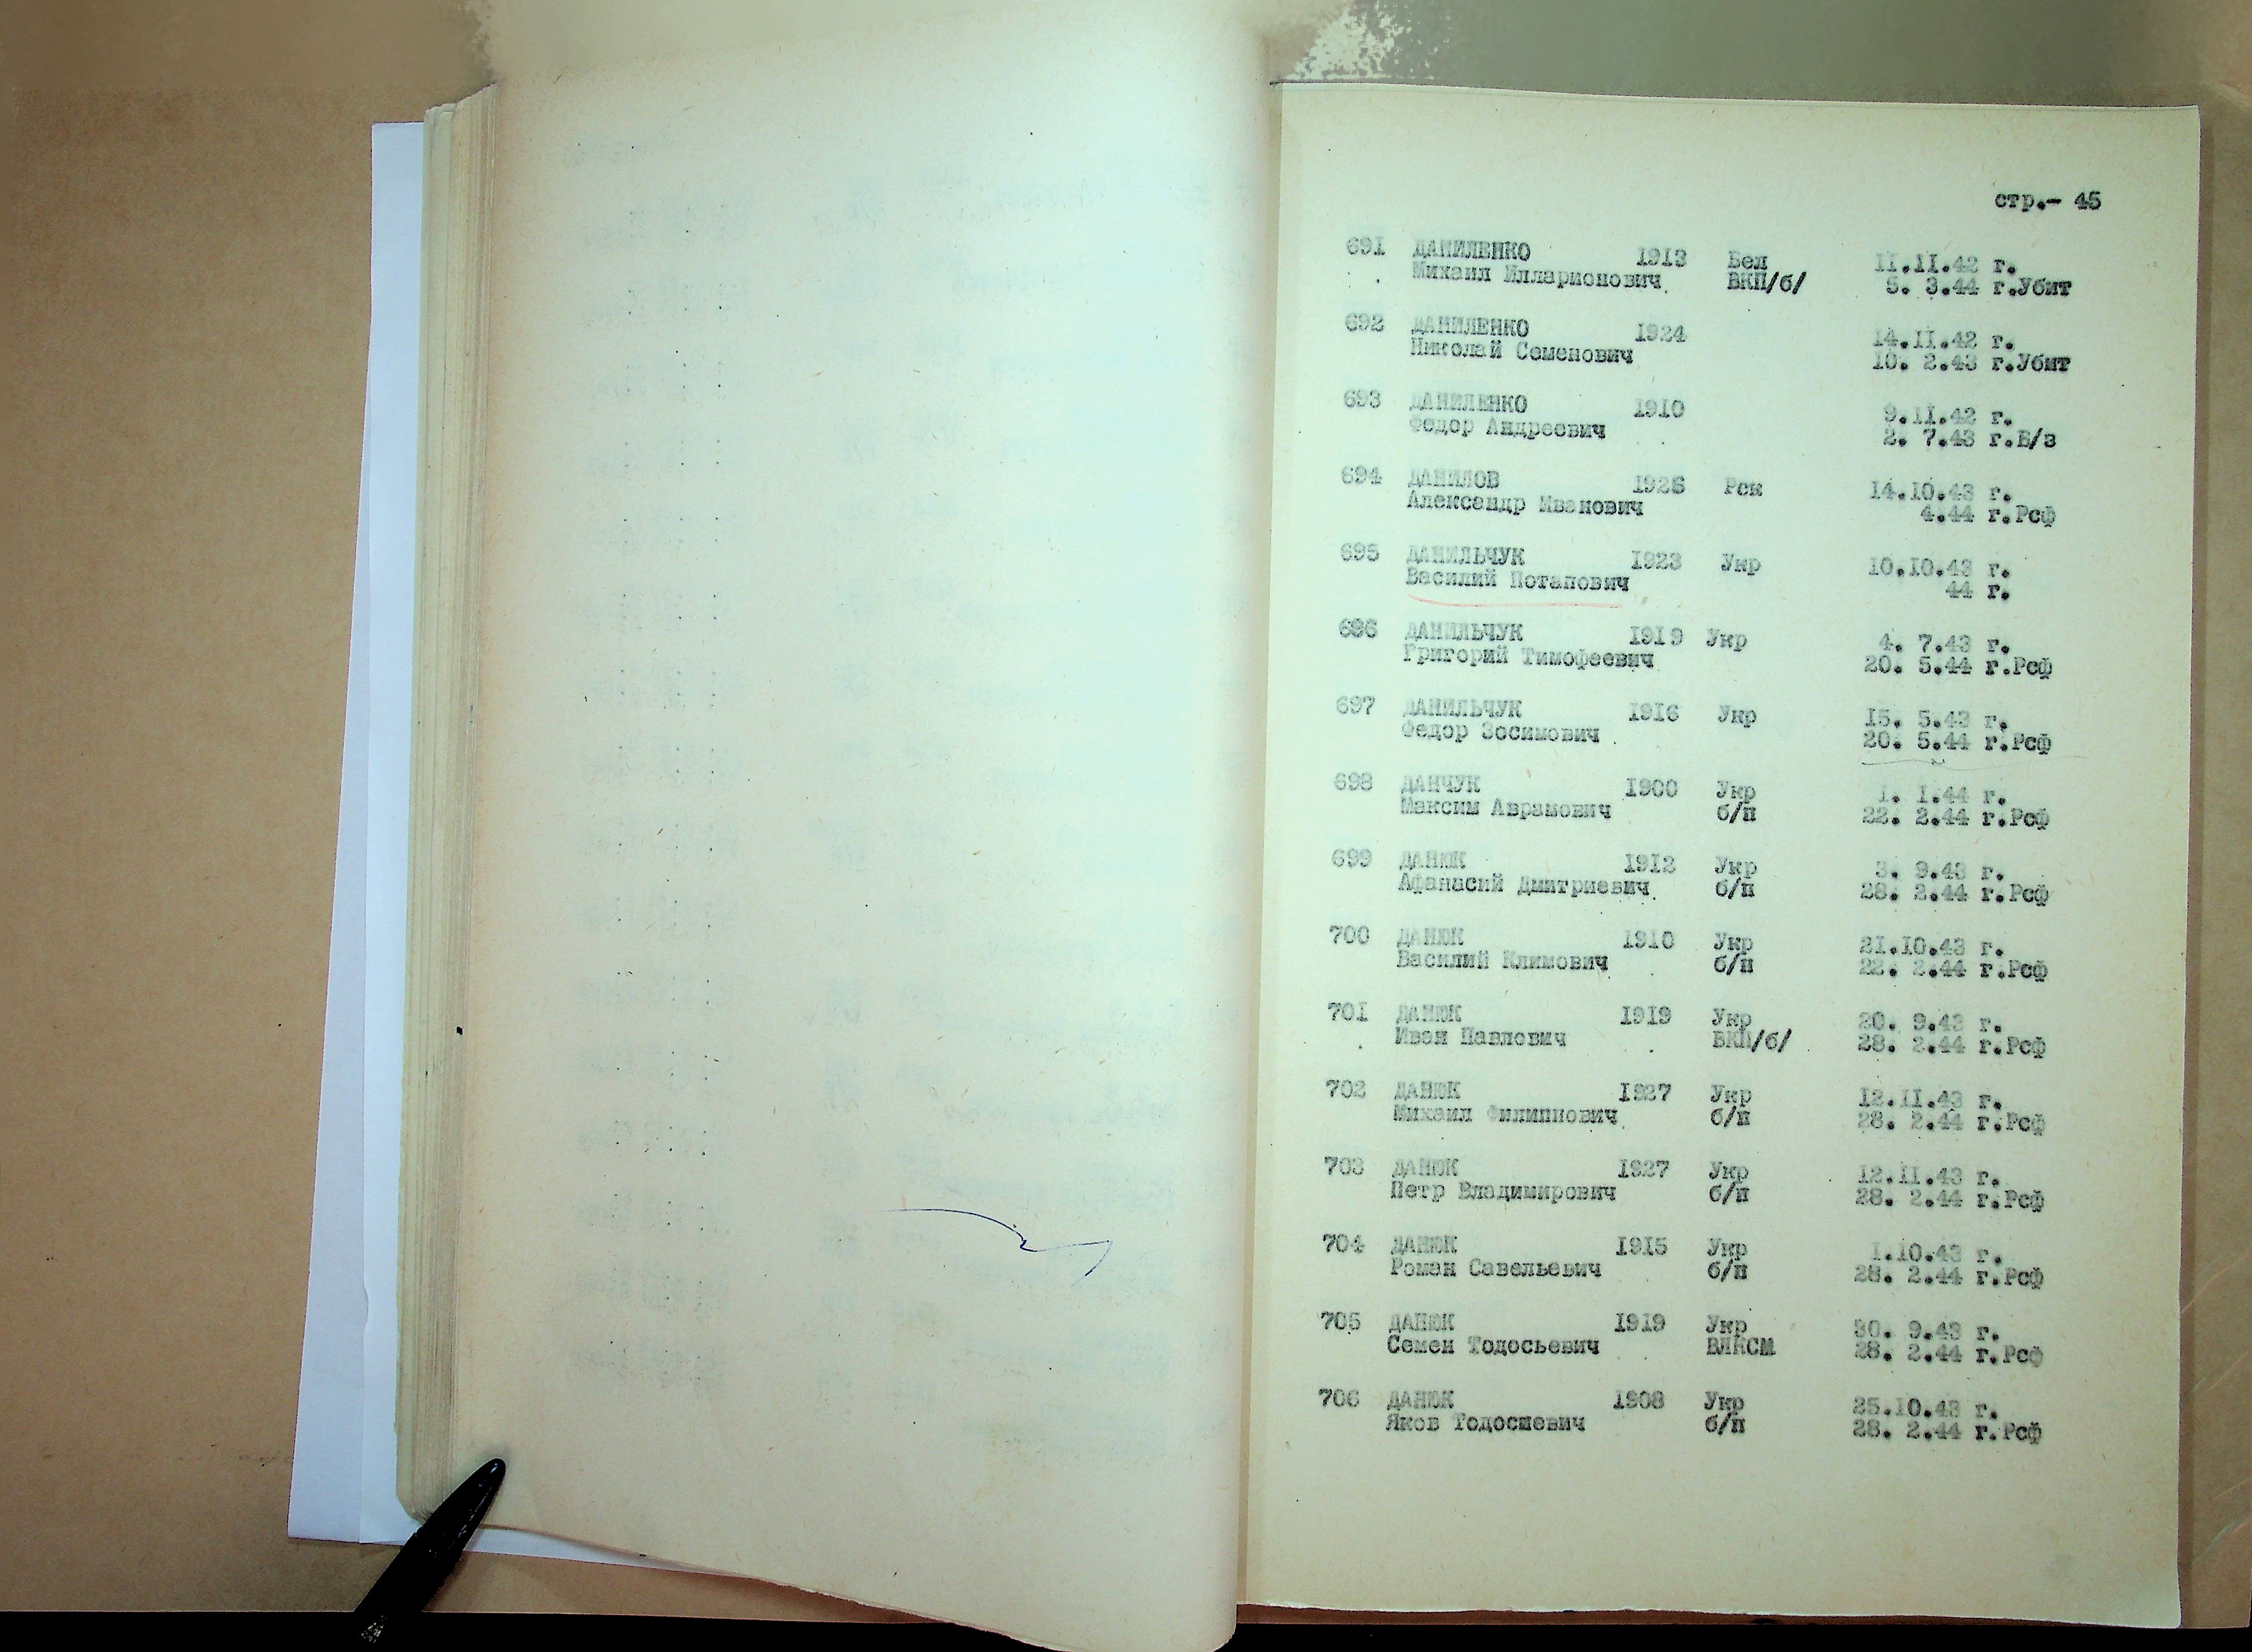 стр.- 45
691 ДАНИЛЕНКО 1913 Бел 11.11.42 г.
Михаил Илларионович ВКП/б/ 5. 3.44 г.Убит
692 ДАНИЛЕНКО 1924 14.11.42 г.
Николай Семенович 10. 2.43 г.Убит
693 ДАНИЛЕНКО 1910 9.11.42 г.
Федор Андреевич 2. 7.43 г.В/з
694 ДАНИЛОВ Рск 14.10.43 г.
Александр Иванович 4.44 г.Рсф
695 ДАНИЛЬЧУК 1923 Укр 10.10.43 г.
Василий Потапович 44 г.
696 ДАНИЛЬЧУК 1919 Укр 4. 7.43 г.
Григорий Тимофеевич 20. 5.44 г.Рсф
697 ДАНИЛЬЧУК 1916 Укр 15. 5.43 г.
Федор Зосимович 20. 5.44 г.Рсф
698 ДАНЧУК 1900 Укр 1. 1.44 г.
Максим Аврамович б/п 22. 2.44 г.Рсф
699 ДАНЮК 1912 Укр 3. 9.43 г.
Афанасий Дмитриевич б/п 28. 2.44 г.Рсф
700 ДАНЮК 1910 Укр 21.10.43 г.
Василий Климович б/п 22. 2.44 г.Рсф
701 ДАНЮК 1919 Укр 20. 9.43 г.
Иван Павлович ВКП/б/ 28. 2.44 г.Рсф
702 ДАНЮК 1927 Укр 12.11.43 г.
Михаил Филиппович б/п 28. 2.44 г.Рсф
703 ДАНЮК 1927 Укр 12.11.43 г.
Петр Владимирович б/п 28. 2.44 г.Рсф
704 ДАНЮК 1915 Укр 1.10.43 г.
Роман Савельевич б/п 28. 2.44 г.Рсф
705 ДАНЮК 1919 Укр 30. 9.43 г.
Семен Тодосьевич ВЛКСМ 28. 2.44 г.Рсф
706 ДАНЮК 1908 Укр 25.10.43 г.
Яков Тодосиевич б/п 28. 2.44 г.Рсф